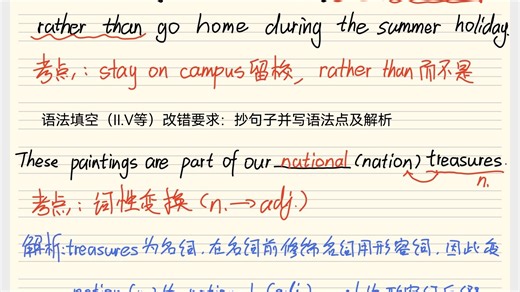 rather than go home during the summer holiday.
考点:stay on campus留校, rather than而不是
语法填空(II.V等)改错要求:抄句子并写语法点及解析
These paintings are part of our national (nation) treasures.
n.
考点:词性变换(n.→adj.)
解析:treasures为名词,在名词前修饰名词用形容词,因此变